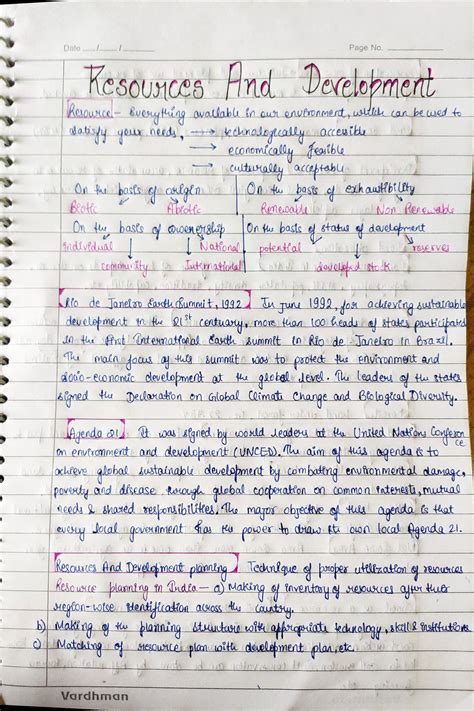 Date ...../...../.....
Page No.
Resources And Development
Resource - Everything available in our environment, which can be used to
satisfy your needs, → technologically accesible
→ economically feasible
→ culturally acceptable
On the basis of origin On the basis of exhaustibility
Biotic Abiotic Renewable Non Renewable
On the basis of ownership On the basis of status of development
individual National potential reserves
community International developed stock
Rio de Janeiro Earth Summit, 1992 In June 1992, for achieving sustainable
development in the 21st centuary, more than 100 heads of states participated
in the first International Earth summit in Rio de Janeiro in Brazil.
The main focus of this summit was to protect the environment and
socio-economic development at the global level. The leaders of the states
signed the Declaration on Global Climate Change and Biological Diversity.
Agenda 21 It was signed by world leaders at the United Nations Conferen
ce
on environment and development (UNCED). The aim of this agenda is to
achieve global sustainable development by combating environmental damage,
poverty and disease through global cooperation on common interests, mutual
needs & shared responsibilities. The major objective of this agenda is that
every local government has the power to draw its own local Agenda 21.
Resources And Development planning Technique of proper utilization of resources
Resource planning in India - a) Making of inventory of resources after their
region-wise identification across the country.
b) Making of the planning structure with appropriate technology, skill & institutions
c) Matching of resource plan with development plan, etc.
Vardhman